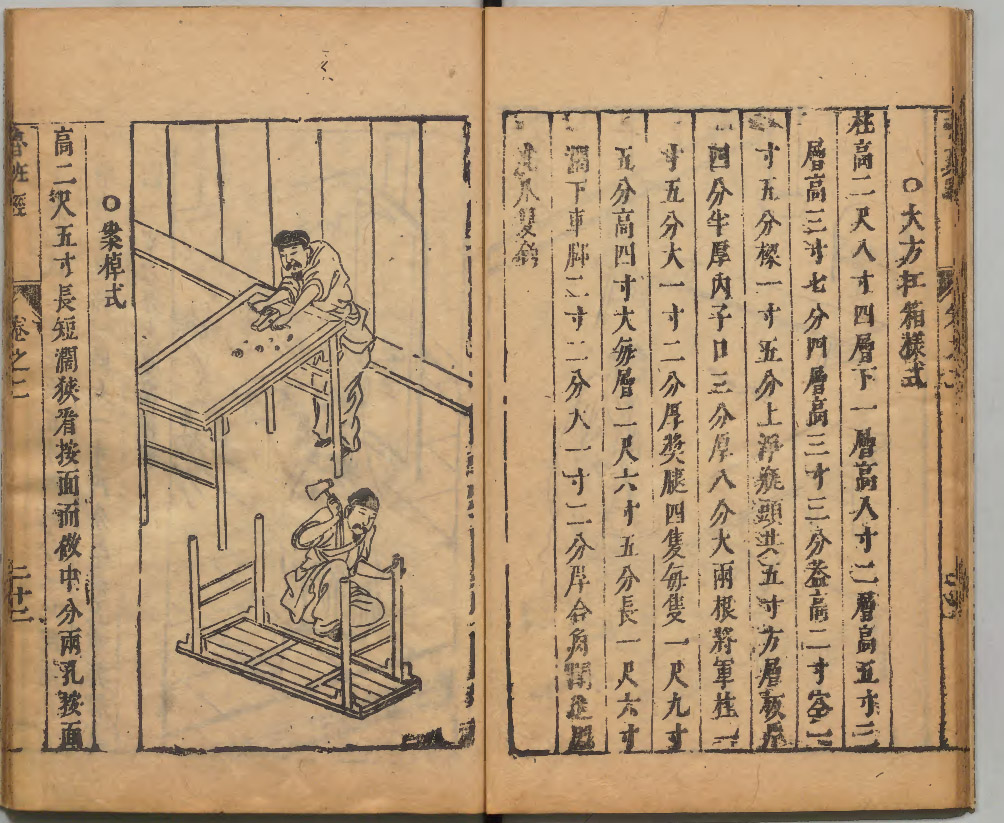 ○大方扛箱樣式
柱高二尺八寸四層下一層高八寸二層高五寸三
層高三寸七分四層高三寸三分盖高二寸空一
寸五分樑一寸五分上淨瓶頭共五寸方層板片
四分半厚內子口三分厚八分大兩根將軍柱一
寸五分大一寸二分厚獎腿四隻每隻一尺九寸
五分高四寸大每層二尺六寸五分長一尺六寸
濶下車脚二寸二分大一寸二分厚合角閗進
雙
○案棹式
高二尺五寸長短濶狹看按面而做中分兩孔按面
魯班經
卷之二
二十二